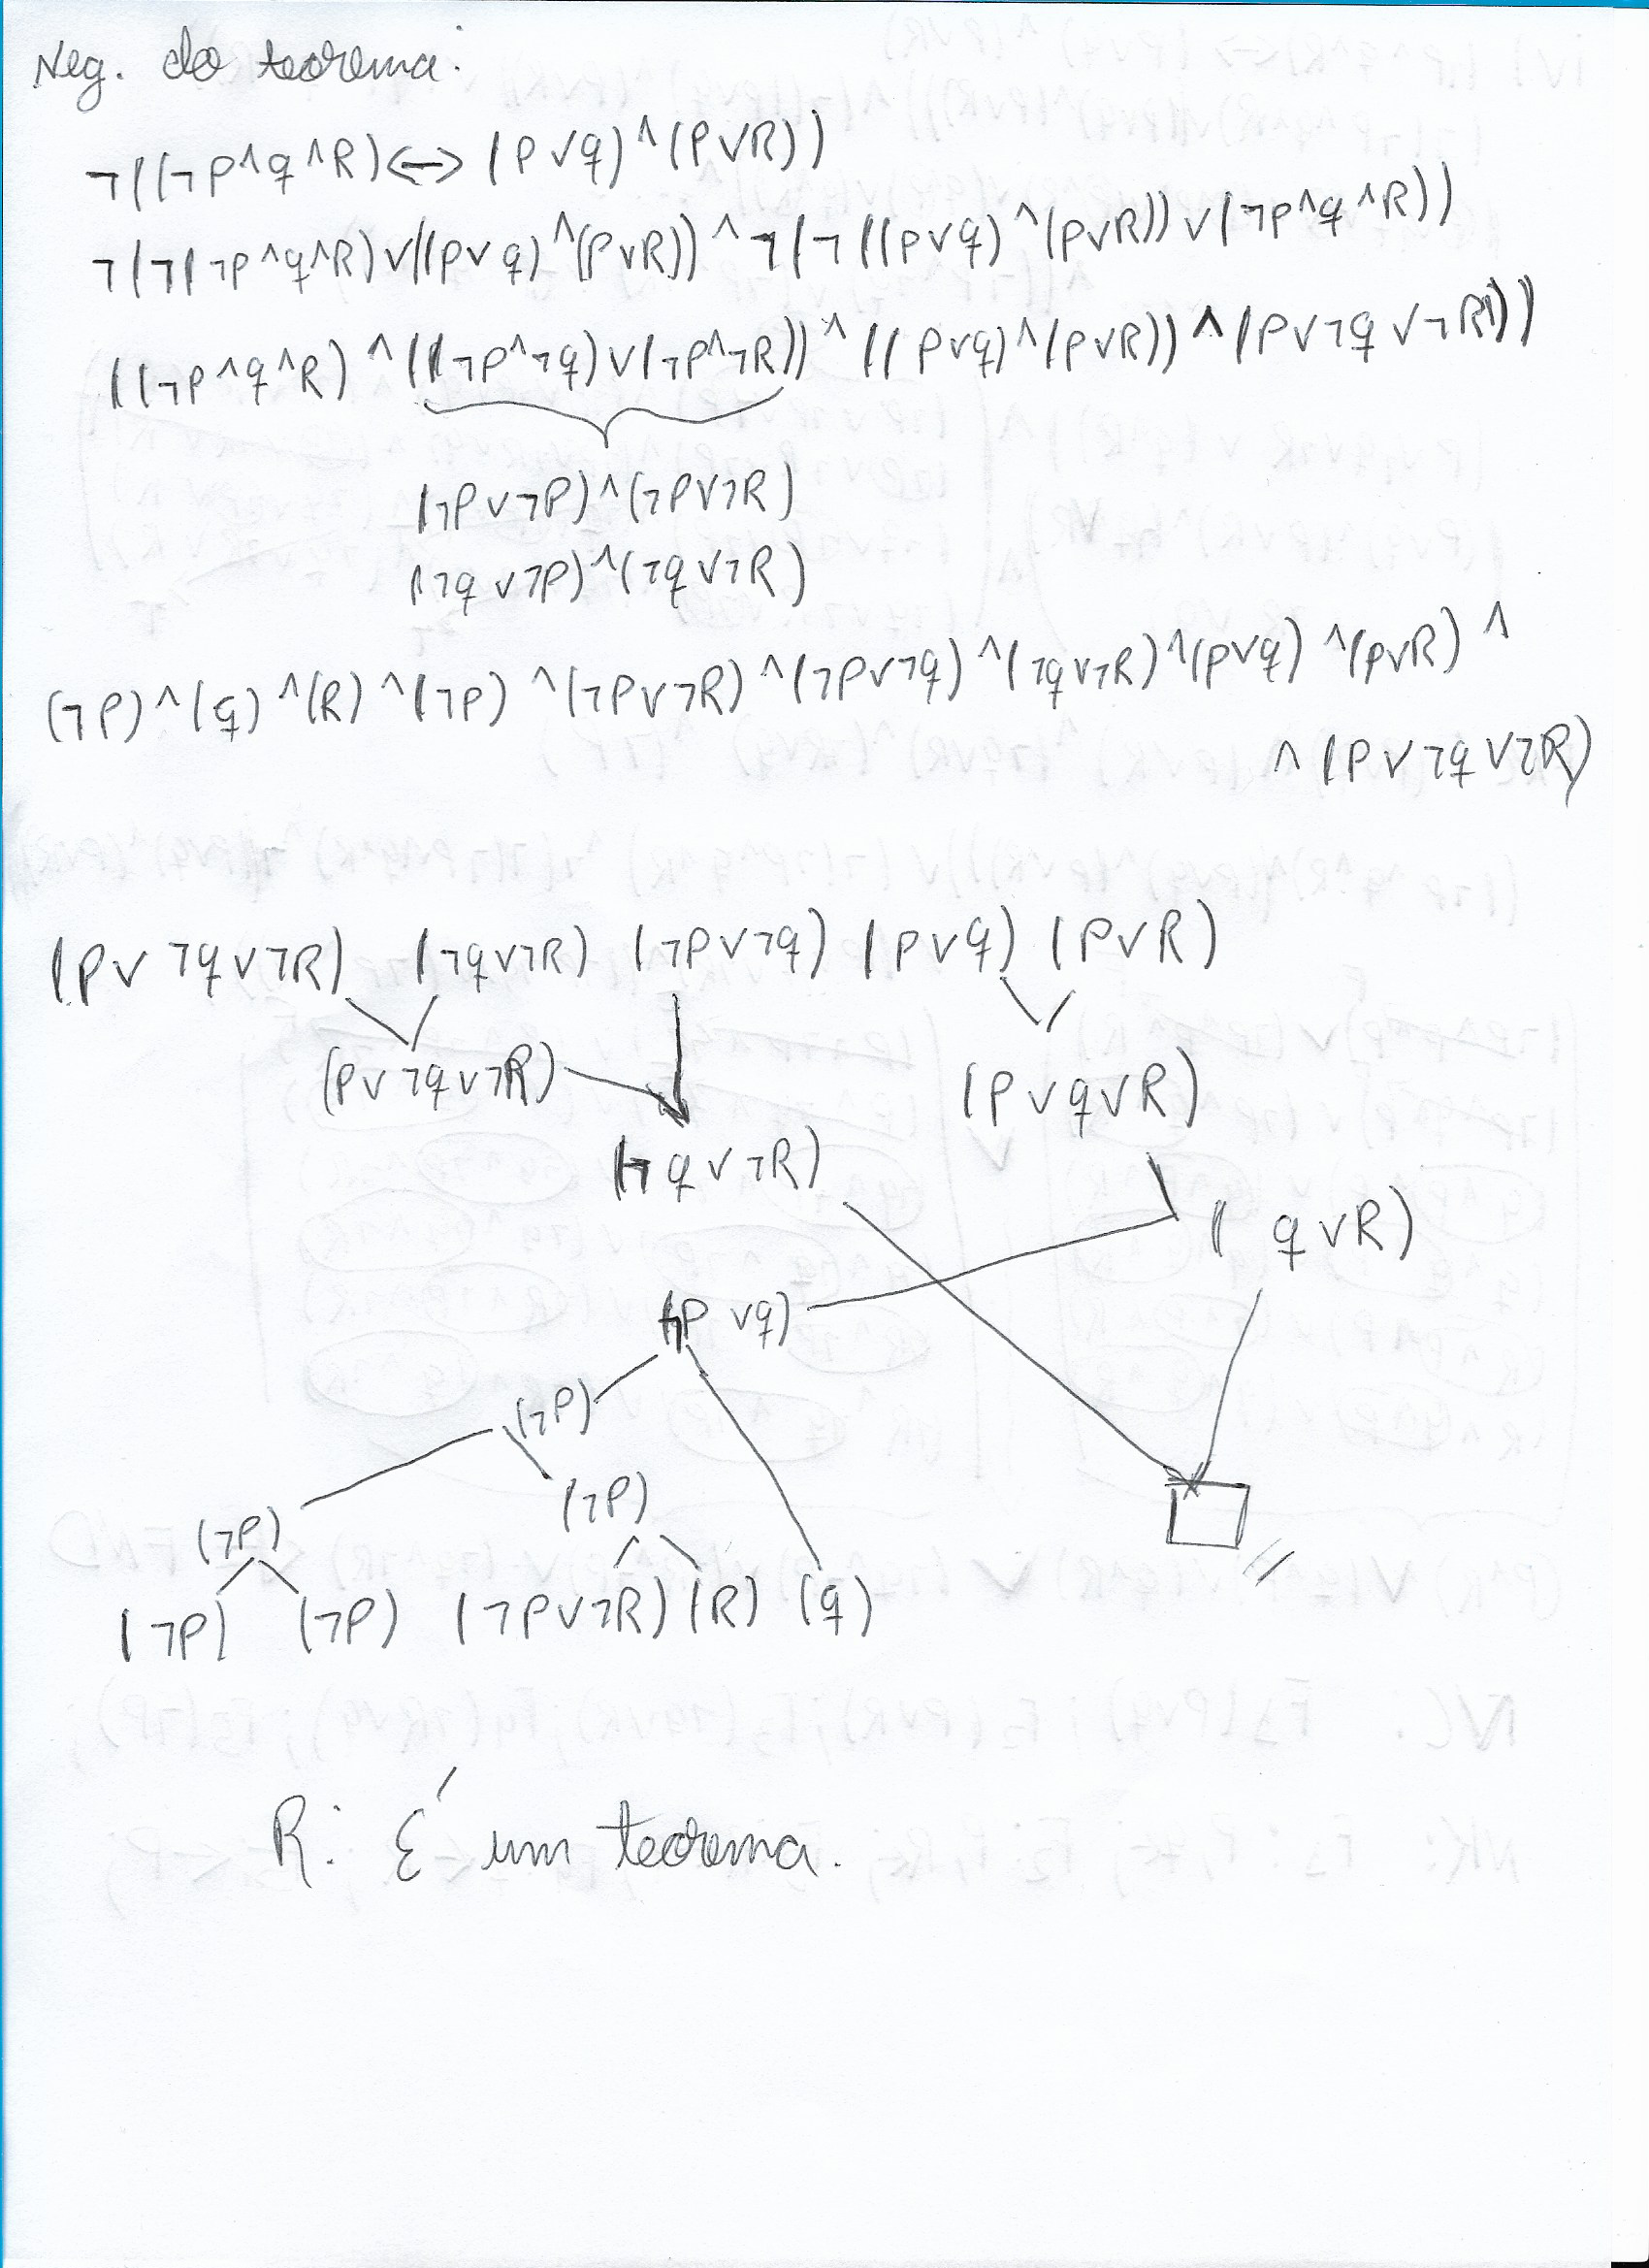 Neg. do teorema:
¬((¬P^q^R)<->(P∨q)^(P∨R))
¬(¬(¬P^q^R)∨((P∨q)^(P∨R))^¬(¬((P∨q)^(P∨R))∨(¬P^q^R))
((¬P^q^R)^((¬P^¬q)∨(¬P^¬R))^((P∨q)^(P∨R))^(P∨¬q∨¬R))
(¬P∨¬P)^(¬P∨¬R)
(¬q∨¬P)^(¬q∨¬R)
(¬P)^(q)^(R)^(¬P)^(¬P∨¬R)^(¬P∨¬q)^(¬q∨¬R)^(P∨q)^(P∨R)^
^(P∨¬q∨¬R)
(P∨¬q∨¬R) (¬q∨¬R) (¬P∨¬q) (P∨q) (P∨R)
(P∨¬q∨¬R) (P∨q∨R)
(¬q∨¬R)
(q∨R)
(¬P∨q)
(¬P)
(¬P)
(¬P)
(¬P) (¬P) (¬P∨¬R) (R) (q)
R: É um teorema.